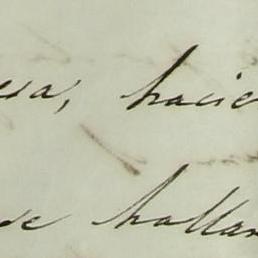 esa, hacie
se hallan